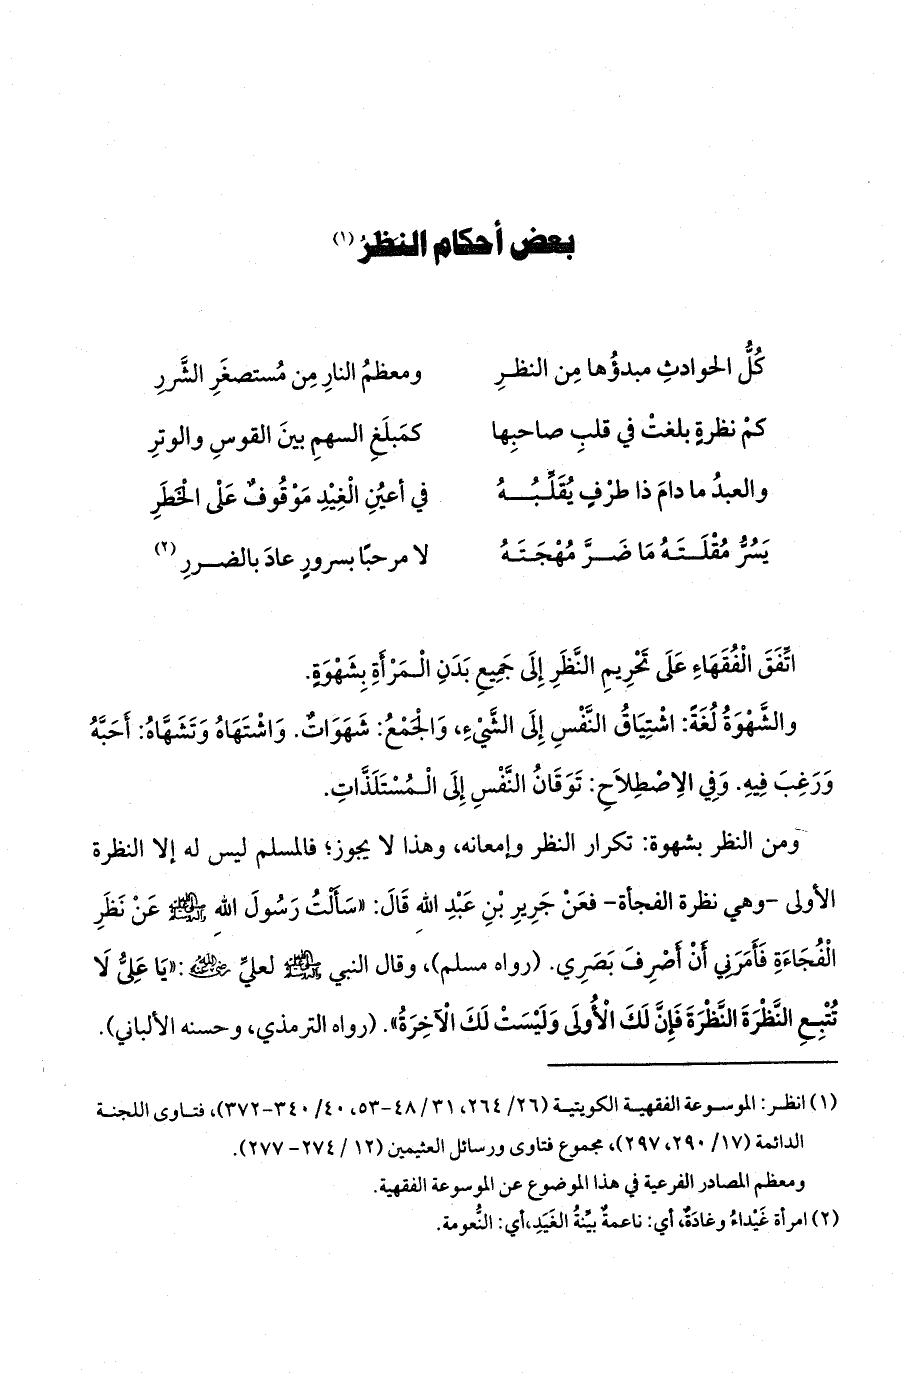 بعض أحكام النظر (١)
كُلُّ الحوادثِ مبدؤُها مِن النظرِ ومعظمُ النارِ مِن مُستصغَرِ الشَّررِ
كمْ نظرةٍ بلغتْ في قلبِ صاحبِها كمَبلَغِ السهمِ بينَ القوسِ والوترِ
والعبدُ ما دامَ ذا طرْفٍ يُقَلِّبُـــهُ في أعيُنِ الْغِيْدِ مَوْقُوفٌ عَلَى الْخَطَرِ
يَسُرُّ مُقْلَــتَــهُ مَا ضَــرَّ مُهْجَـتَــهُ لا مرحبًا بسرورٍ عادَ بالضــررِ (٢)
اتَّفَقَ الْفُقَهَاءِ عَلَى تَحْرِيمِ النَّظَرِ إِلَى جَمِيعِ بَدَنِ الْـمَرْأَةِ بِشَهْوَةٍ.
والشَّهْوَةُ لُغَةً: اشْتِيَاقُ النَّفْسِ إِلَى الشَّيْءِ، وَالْجَمْعُ: شَهَوَاتٌ. وَاشْتَهَاهُ وَتَشَهَّاهُ: أَحَبَّهُ
وَرَغِبَ فِيهِ. وَفِي الاِصْطِلاَحِ: تَوَقَانُ النَّفْسِ إِلَى الْـمُسْتَلَذَّاتِ.
ومن النظر بشهوة: تكرار النظر وإمعانه، وهذا لا يجوز؛ فالمسلم ليس له إلا النظرة
الأولى -وهي نظرة الفجأة- فعَنْ جَرِيرِ بْنِ عَبْدِ اللهِ قَالَ: «سَأَلْتُ رَسُولَ اللهِ ﷺ عَنْ نَظَرِ
الْفُجَاءَةِ فَأَمَرَنِي أَنْ أَصْرِفَ بَصَرِي. (رواه مسلم)، وقال النبي ﷺ لعليٍّ رضي الله عنه: «يَا عَلِيُّ لَا
تُتْبِعِ النَّظْرَةَ النَّظْرَةَ فَإِنَّ لَكَ الْأُولَى وَلَيْسَتْ لَكَ الْآخِرَةُ». (رواه الترمذي، وحسنه الألباني).
(١) انظـر: الموسـوعة الفقهيـة الكويتيـة (٢٦/ ٢٦٤، ٣١/ ٤٨-٥٣، ٤٠/ ٣٤٠-٣٧٢)، فتـاوى اللجنـة
الدائمة (١٧/ ٢٩٠، ٢٩٧)، مجموع فتاوى ورسائل العثيمين (١٢ / ٢٧٤- ٢٧٧).
ومعظم المصادر الفرعية في هذا الموضوع عن الموسوعة الفقهية.
(٢) امرأة غَيْداءُ وغادَةٌ، أي: ناعمةٌ بيِّنةُ الغَيَدِ،أي: النُّعومة.